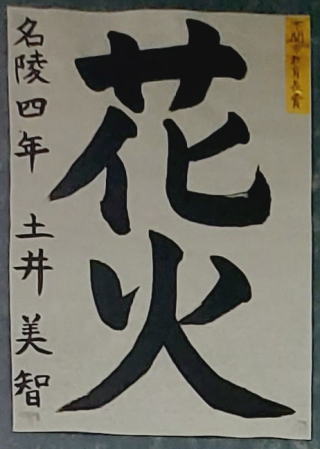 花火
名陵四年 土井美智